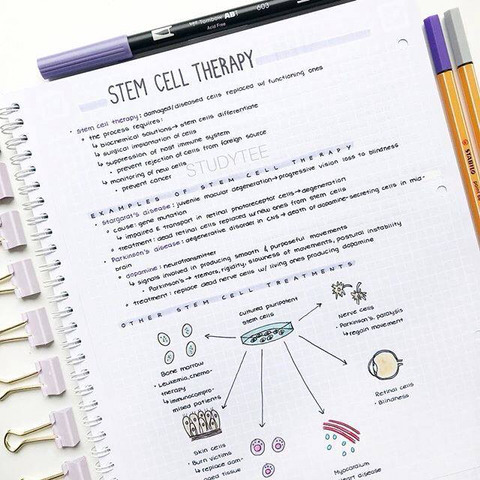 Tombow ABT
603
Acid Free
STEM CELL THERAPY
Stem cell therapy: damaged/diseased cells replaced w/ functioning ones
• the process requires:
↳ biochemical solutions → stem cells differentiate
↳ surgical implantation of cells
↳ suppression of host immune system
• prevent rejection of cells from foreign source
↳ monitoring of new cells
• prevent cancer
STUDYTEE
EXAMPLES OF STEM CELL THERAPY
Stargardt's disease: juvenile macular degeneration → progressive vision loss to blindness
• cause: gene mutation
↳ impaired transport in retinal photoreceptor cells → degeneration
• treatment: dead retinal cells replaced w/ new ones from stem cells
Parkinson's disease: degenerative disorder in CNS → death of dopamine-secreting cells in mid-
brain
• dopamine: neurotransmitter
↳ signals involved in producing smooth & purposeful movements
• Parkinson's → tremors, rigidity, slowness of movements, postural instability
• treatment: replace dead nerve cells w/ living ones producing dopamine
OTHER STEM CELL TREATMENTS
cultured pluripotent
stem cells
Nerve cells
• Parkinson's, paralysis
↳ regain movement
Bone marrow
• Leukemia, chemo-
therapy
↳ immunocompro-
mised patients
Retinal cells
• Blindness
Skin cells
• Burn victims
↳ replace dam-
aged tissue
Myocardium
heart disease
STABILO